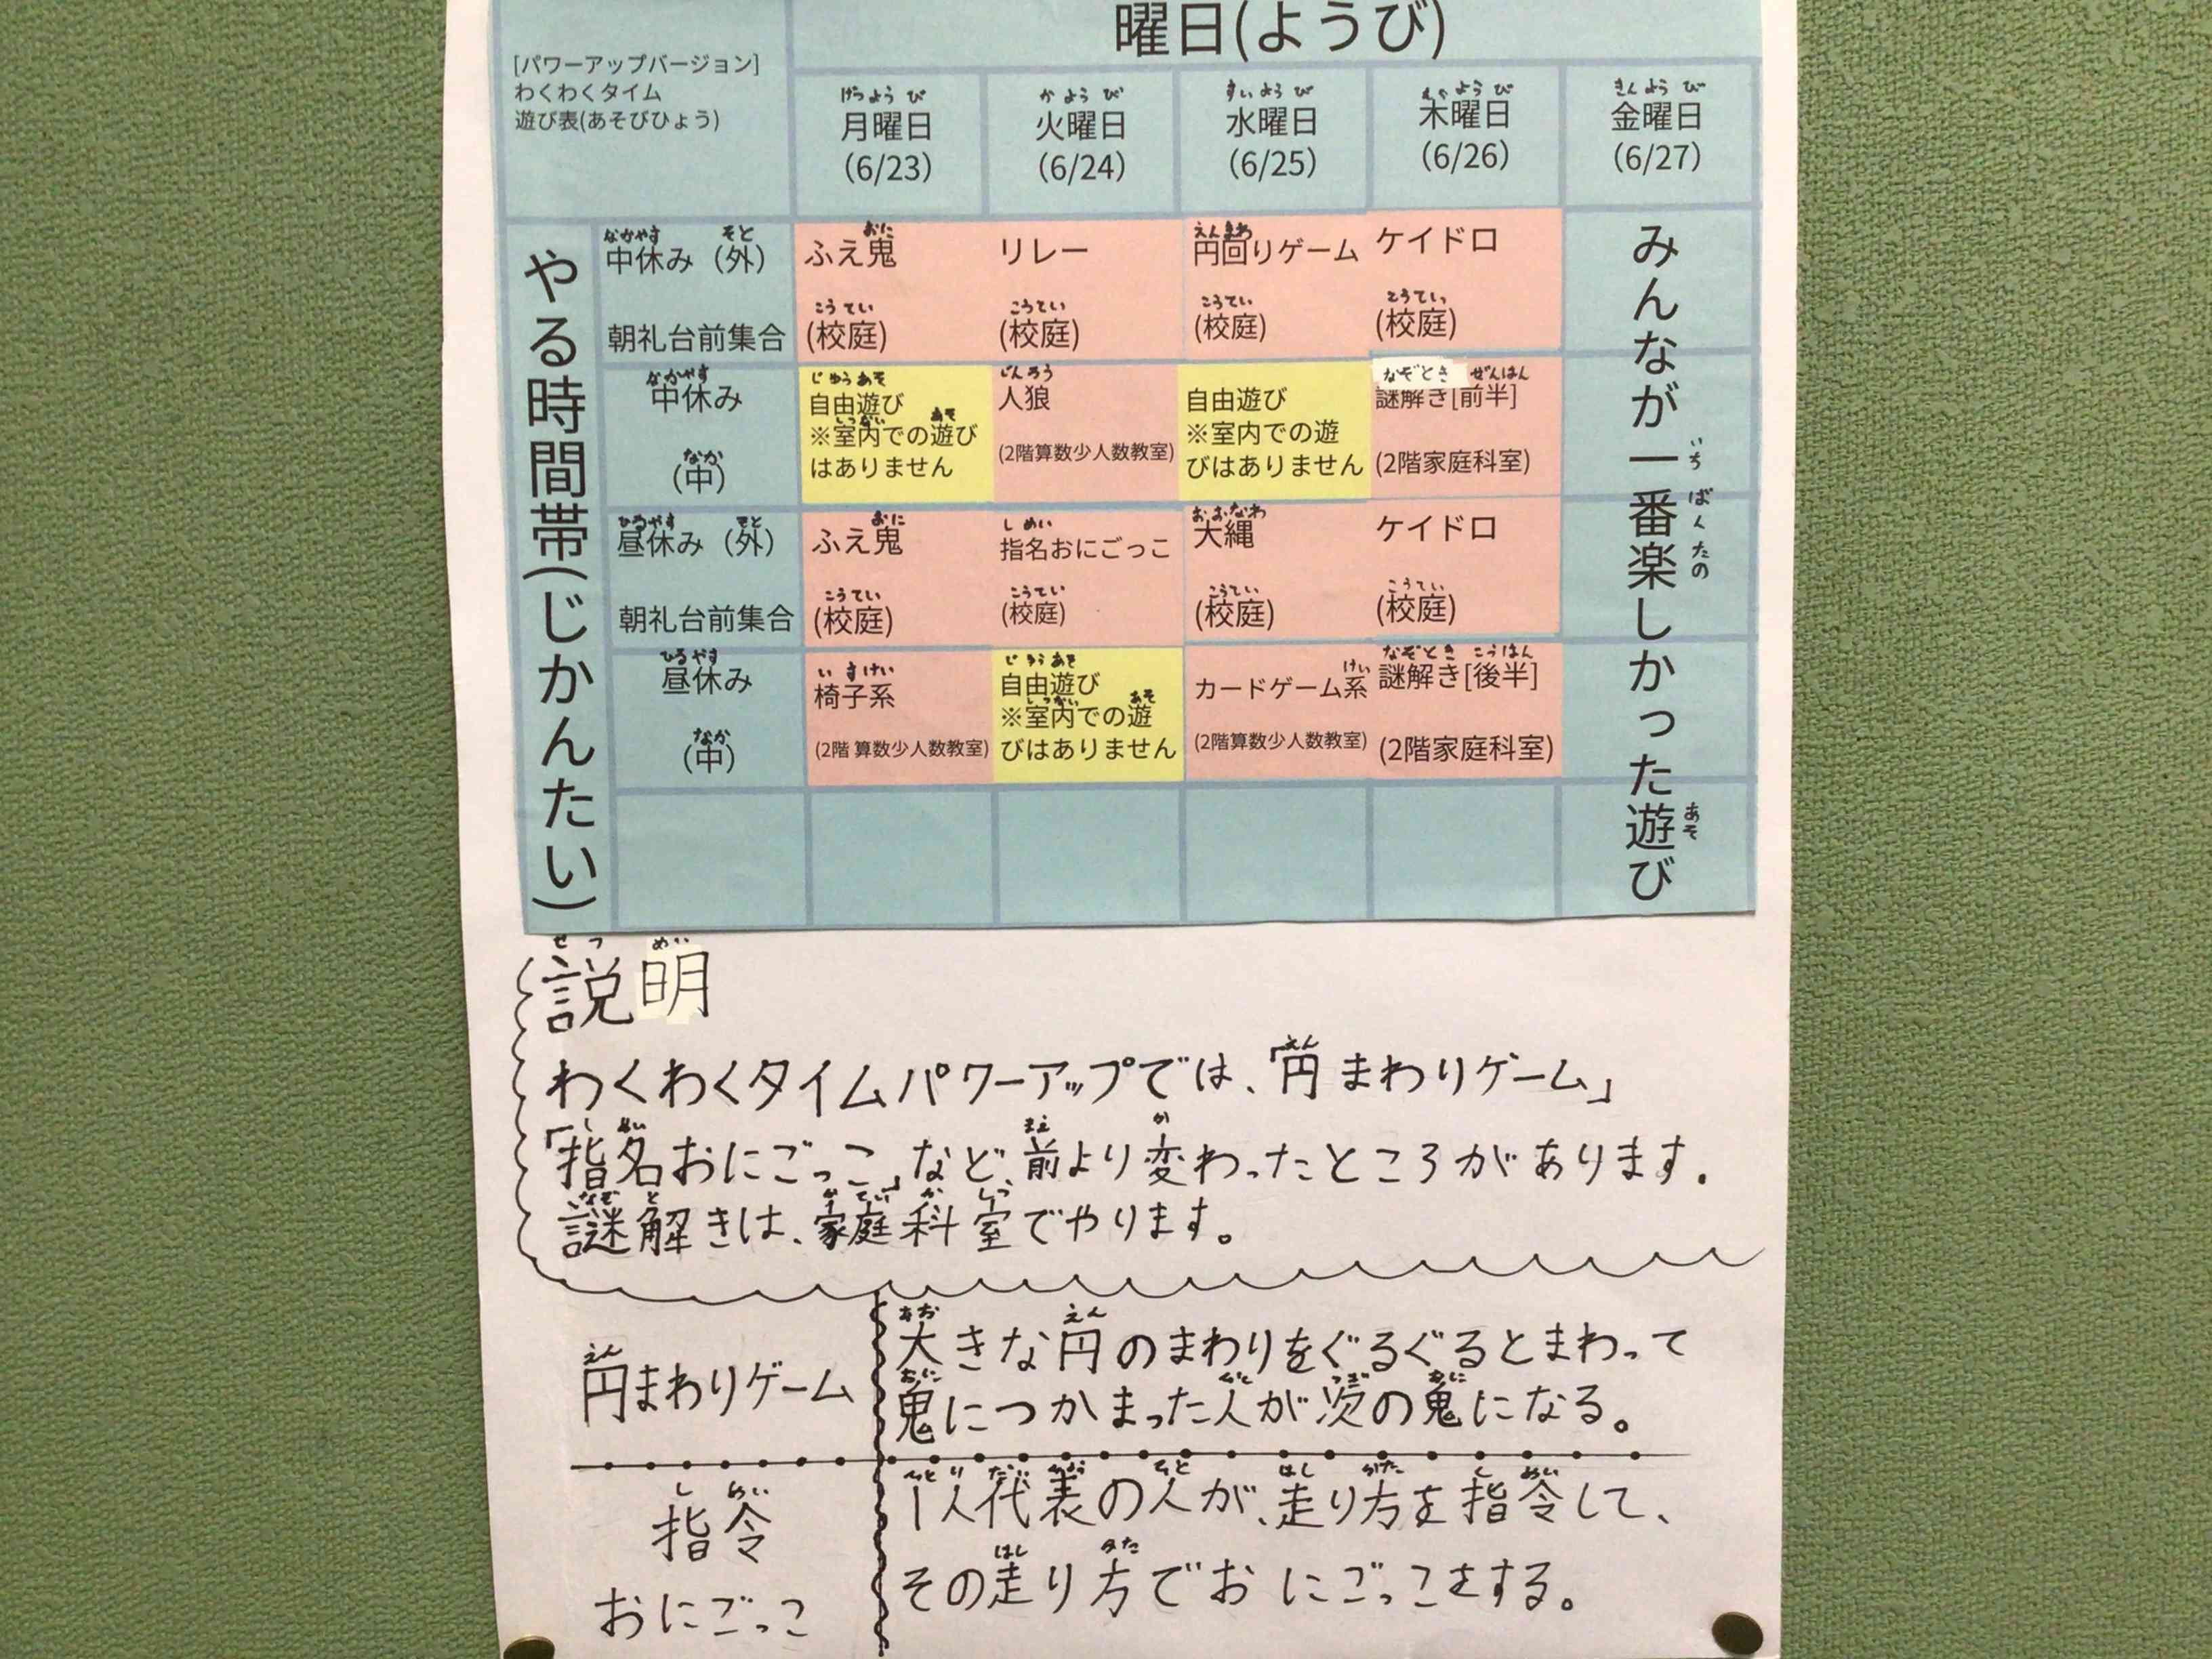 曜日(ようび)
[パワーアップバージョン]
わくわくタイム
遊び表(あそびひょう)
げつようび
月曜日
(6/23)
かようび
火曜日
(6/24)
すいようび
水曜日
(6/25)
もくようび
木曜日
(6/26)
きんようび
金曜日
(6/27)
やる時間帯(じかんたい)
なかやす そと
中休み (外)
朝礼台前集合
おに
ふえ鬼
こうてい
(校庭)
リレー
こうてい
(校庭)
えんまわ
円回りゲーム
こうてい
(校庭)
ケイドロ
こうてい
(校庭)
なかやす
中休み
なか
(中)
じゆうあそ
自由遊び
しつない あそ
※室内での遊び
はありません
じんろう
人狼
(2階算数少人数教室)
自由遊び
※室内での遊
びはありません
なぞとき ぜんはん
謎解き[前半]
(2階家庭科室)
ひるやす そと
昼休み (外)
朝礼台前集合
おに
ふえ鬼
こうてい
(校庭)
しめい
指名おにごっこ
こうてい
(校庭)
おおなわ
大縄
こうてい
(校庭)
ケイドロ
こうてい
(校庭)
ひるやす
昼休み
なか
(中)
いすけい
椅子系
(2階 算数少人数教室)
じゆうあそ
自由遊び
しつない あそ
※室内での遊
びはありません
けい
カードゲーム系
(2階算数少人数教室)
なぞとき こうはん
謎解き[後半]
(2階家庭科室)
みんなが一番楽しかった遊び
いちばんたの あそ
せつ めい
説明
えん
わくわくタイムパワーアップでは、「円まわりゲーム」
しめい まえ か
「指名おにごっこ」など、前より変わったところがあります.
なぞ と かていかしつ
謎解きは、家庭科室でやります。
えん
円まわりゲーム
おお えん
大きな円のまわりをぐるぐるとまわって
おに ひと つぎ おに
鬼につかまった人が次の鬼になる。
し めい
指令
おにごっこ
ひとり だいひょう ひと はし かた し めい
1人代表の人が、走り方を指令して、
はし かた
その走り方でおにごっこをする。